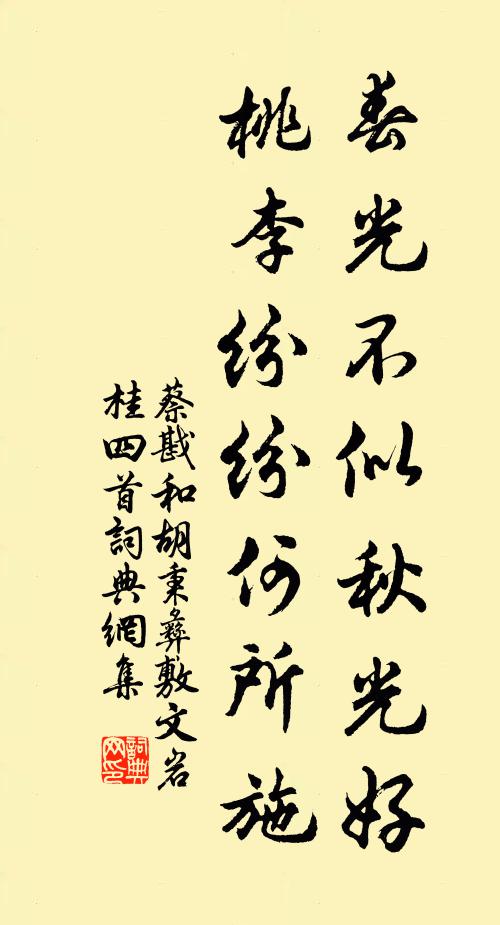 春光不似秋光好
桃李紛紛何所施
蔡戡和胡秉彝敷文岩
桂四首詞典網集
詞典
网印